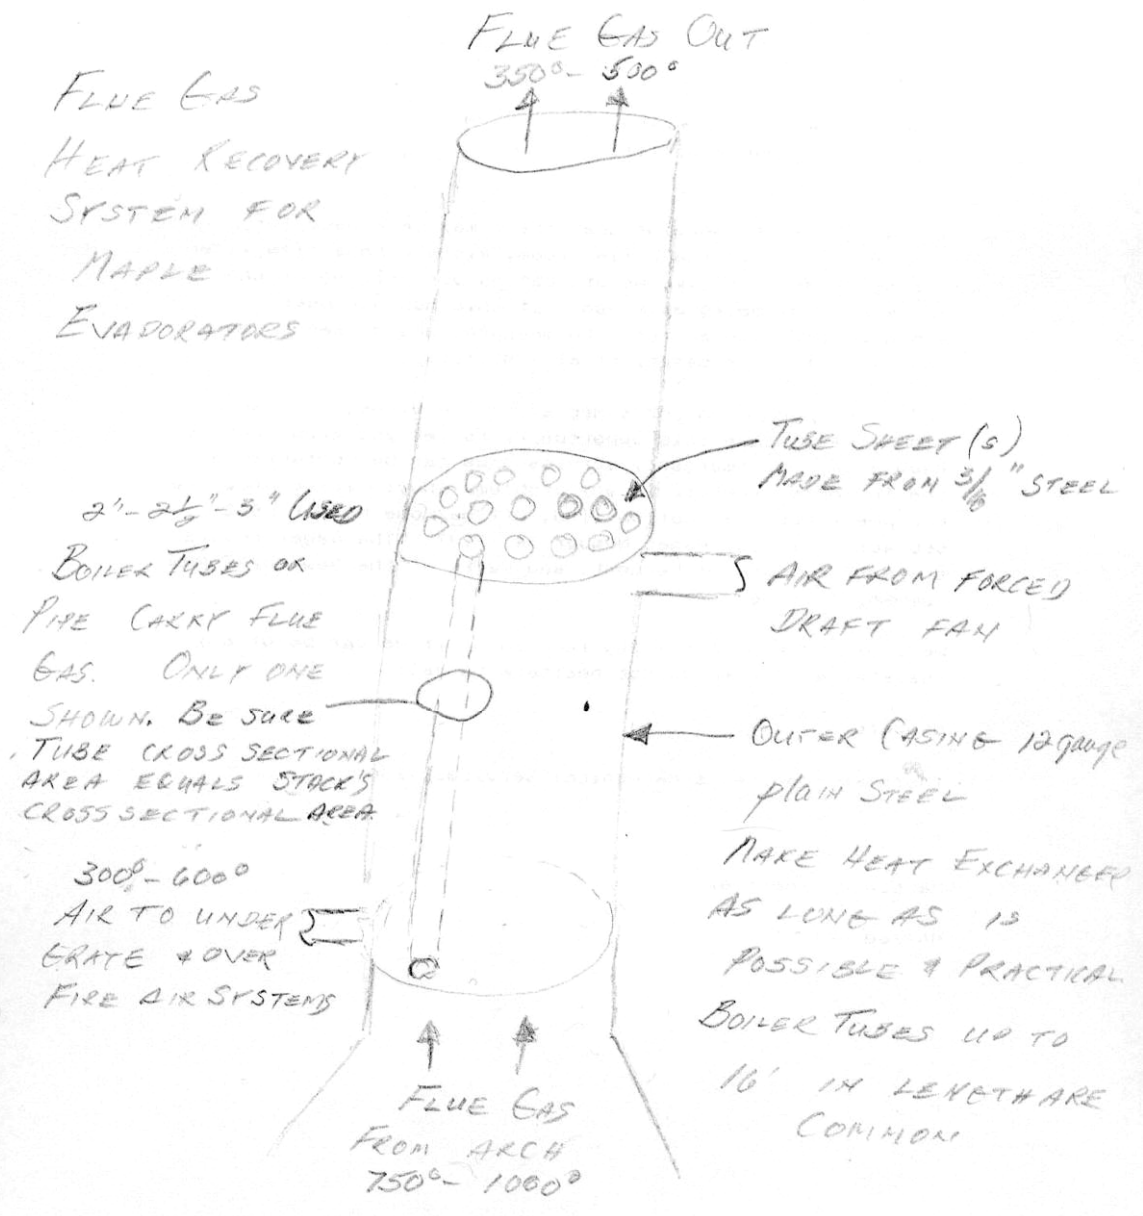 FLUE GAS OUT
350° - 500°
FLUE GAS
HEAT RECOVERY
SYSTEM FOR
MAPLE
EVAPORATORS
TUBE SHEET(S)
MADE FROM 3/16" STEEL
2" - 2 1/2" - 3" USED
BOILER TUBES OR
PIPE CARRY FLUE
GAS. ONLY ONE
SHOWN. BE SURE
TUBE CROSS SECTIONAL
AREA EQUALS STACK'S
CROSS SECTIONAL AREA
AIR FROM FORCED
DRAFT FAN
OUTER CASING 12 gauge
plain STEEL
MAKE HEAT EXCHANGER
AS LONG AS IS
POSSIBLE & PRACTICAL
BOILER TUBES UP TO
16' IN LENGTH ARE
COMMON
300° - 600°
AIR TO UNDER
GRATE & OVER
FIRE AIR SYSTEMS
FLUE GAS
FROM ARCH
750° - 1000°